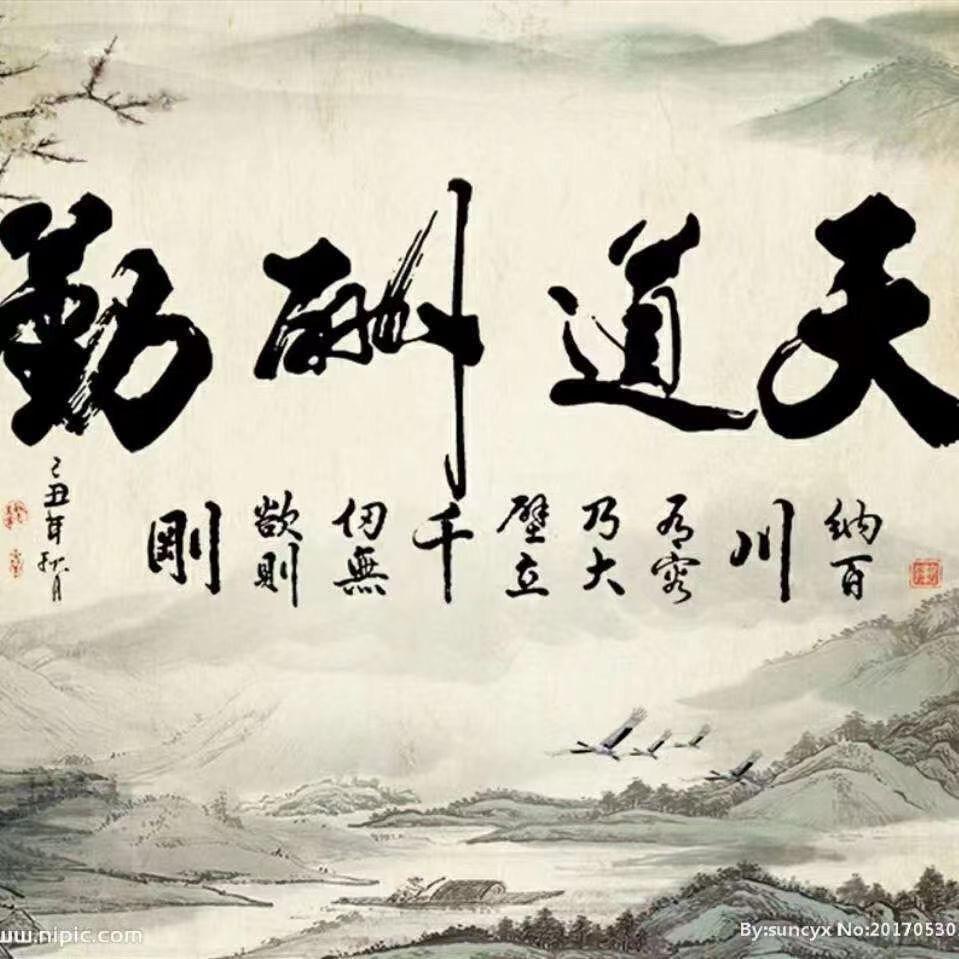 天道酬勤
纳百川有容乃大壁立千仞無欲則剛
己丑年秋月
www.nipic.com
By:suncyx No:20170530